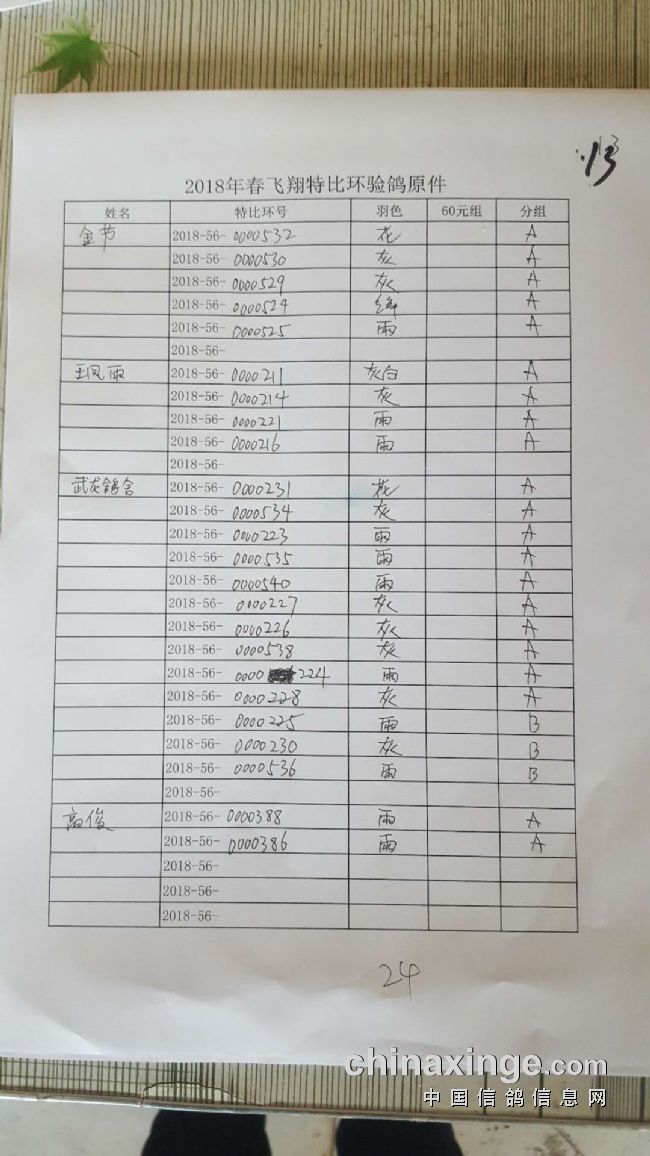 13
2018年春飞翔特比环验鸽原件
姓名 特比环号 羽色 60元组 分组
金节 2018-56-0000532 花 A
2018-56-0000530 灰 A
2018-56-0000529 灰 A
2018-56-0000524 绛 A
2018-56-0000525 雨 A
2018-56-
王凤雨 2018-56-0000211 灰白 A
2018-56-0000214 灰 A
2018-56-0000221 雨 A
2018-56-0000216 雨 A
2018-56-
武友鸽舍 2018-56-0000231 花 A
2018-56-0000534 灰 A
2018-56-0000223 雨 A
2018-56-0000535 雨 A
2018-56-0000540 雨 A
2018-56-0000227 灰 A
2018-56-0000226 灰 A
2018-56-0000538 灰 A
2018-56-0000 224 雨 A
2018-56-0000228 灰 A
2018-56-0000225 雨 B
2018-56-0000230 灰 B
2018-56-0000536 雨 B
2018-56-
高俊 2018-56-0000388 雨 A
2018-56-0000386 雨 A
2018-56-
2018-56-
2018-56-
24
chinaxinge.com
中国信鸽信息网